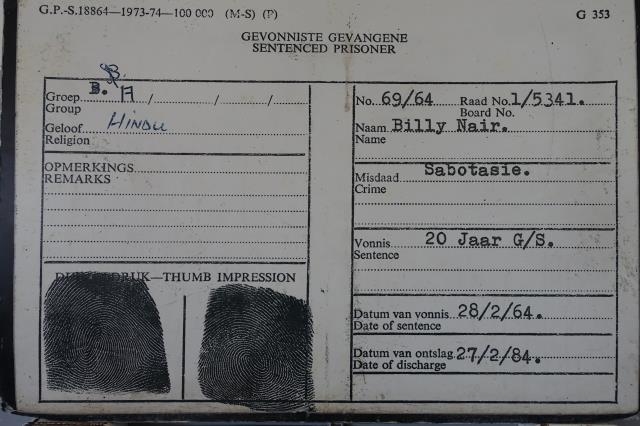 G.P.-S.18864—1973-74—100 000 (M-S) (P)
G 353
GEVONNISTE GEVANGENE
SENTENCED PRISONER
Groep B. A / / /
Group
Geloof HINDU
Religion
OPMERKINGS
REMARKS
DRUK—THUMB IMPRESSION
No. 69/64 Raad No. 1/5341.
Board No.
Naam Billy Nair.
Name
Misdaad Sabotasie.
Crime
Vonnis 20 Jaar G/S.
Sentence
Datum van vonnis 28/2/64.
Date of sentence
Datum van ontslag 27/2/84.
Date of discharge